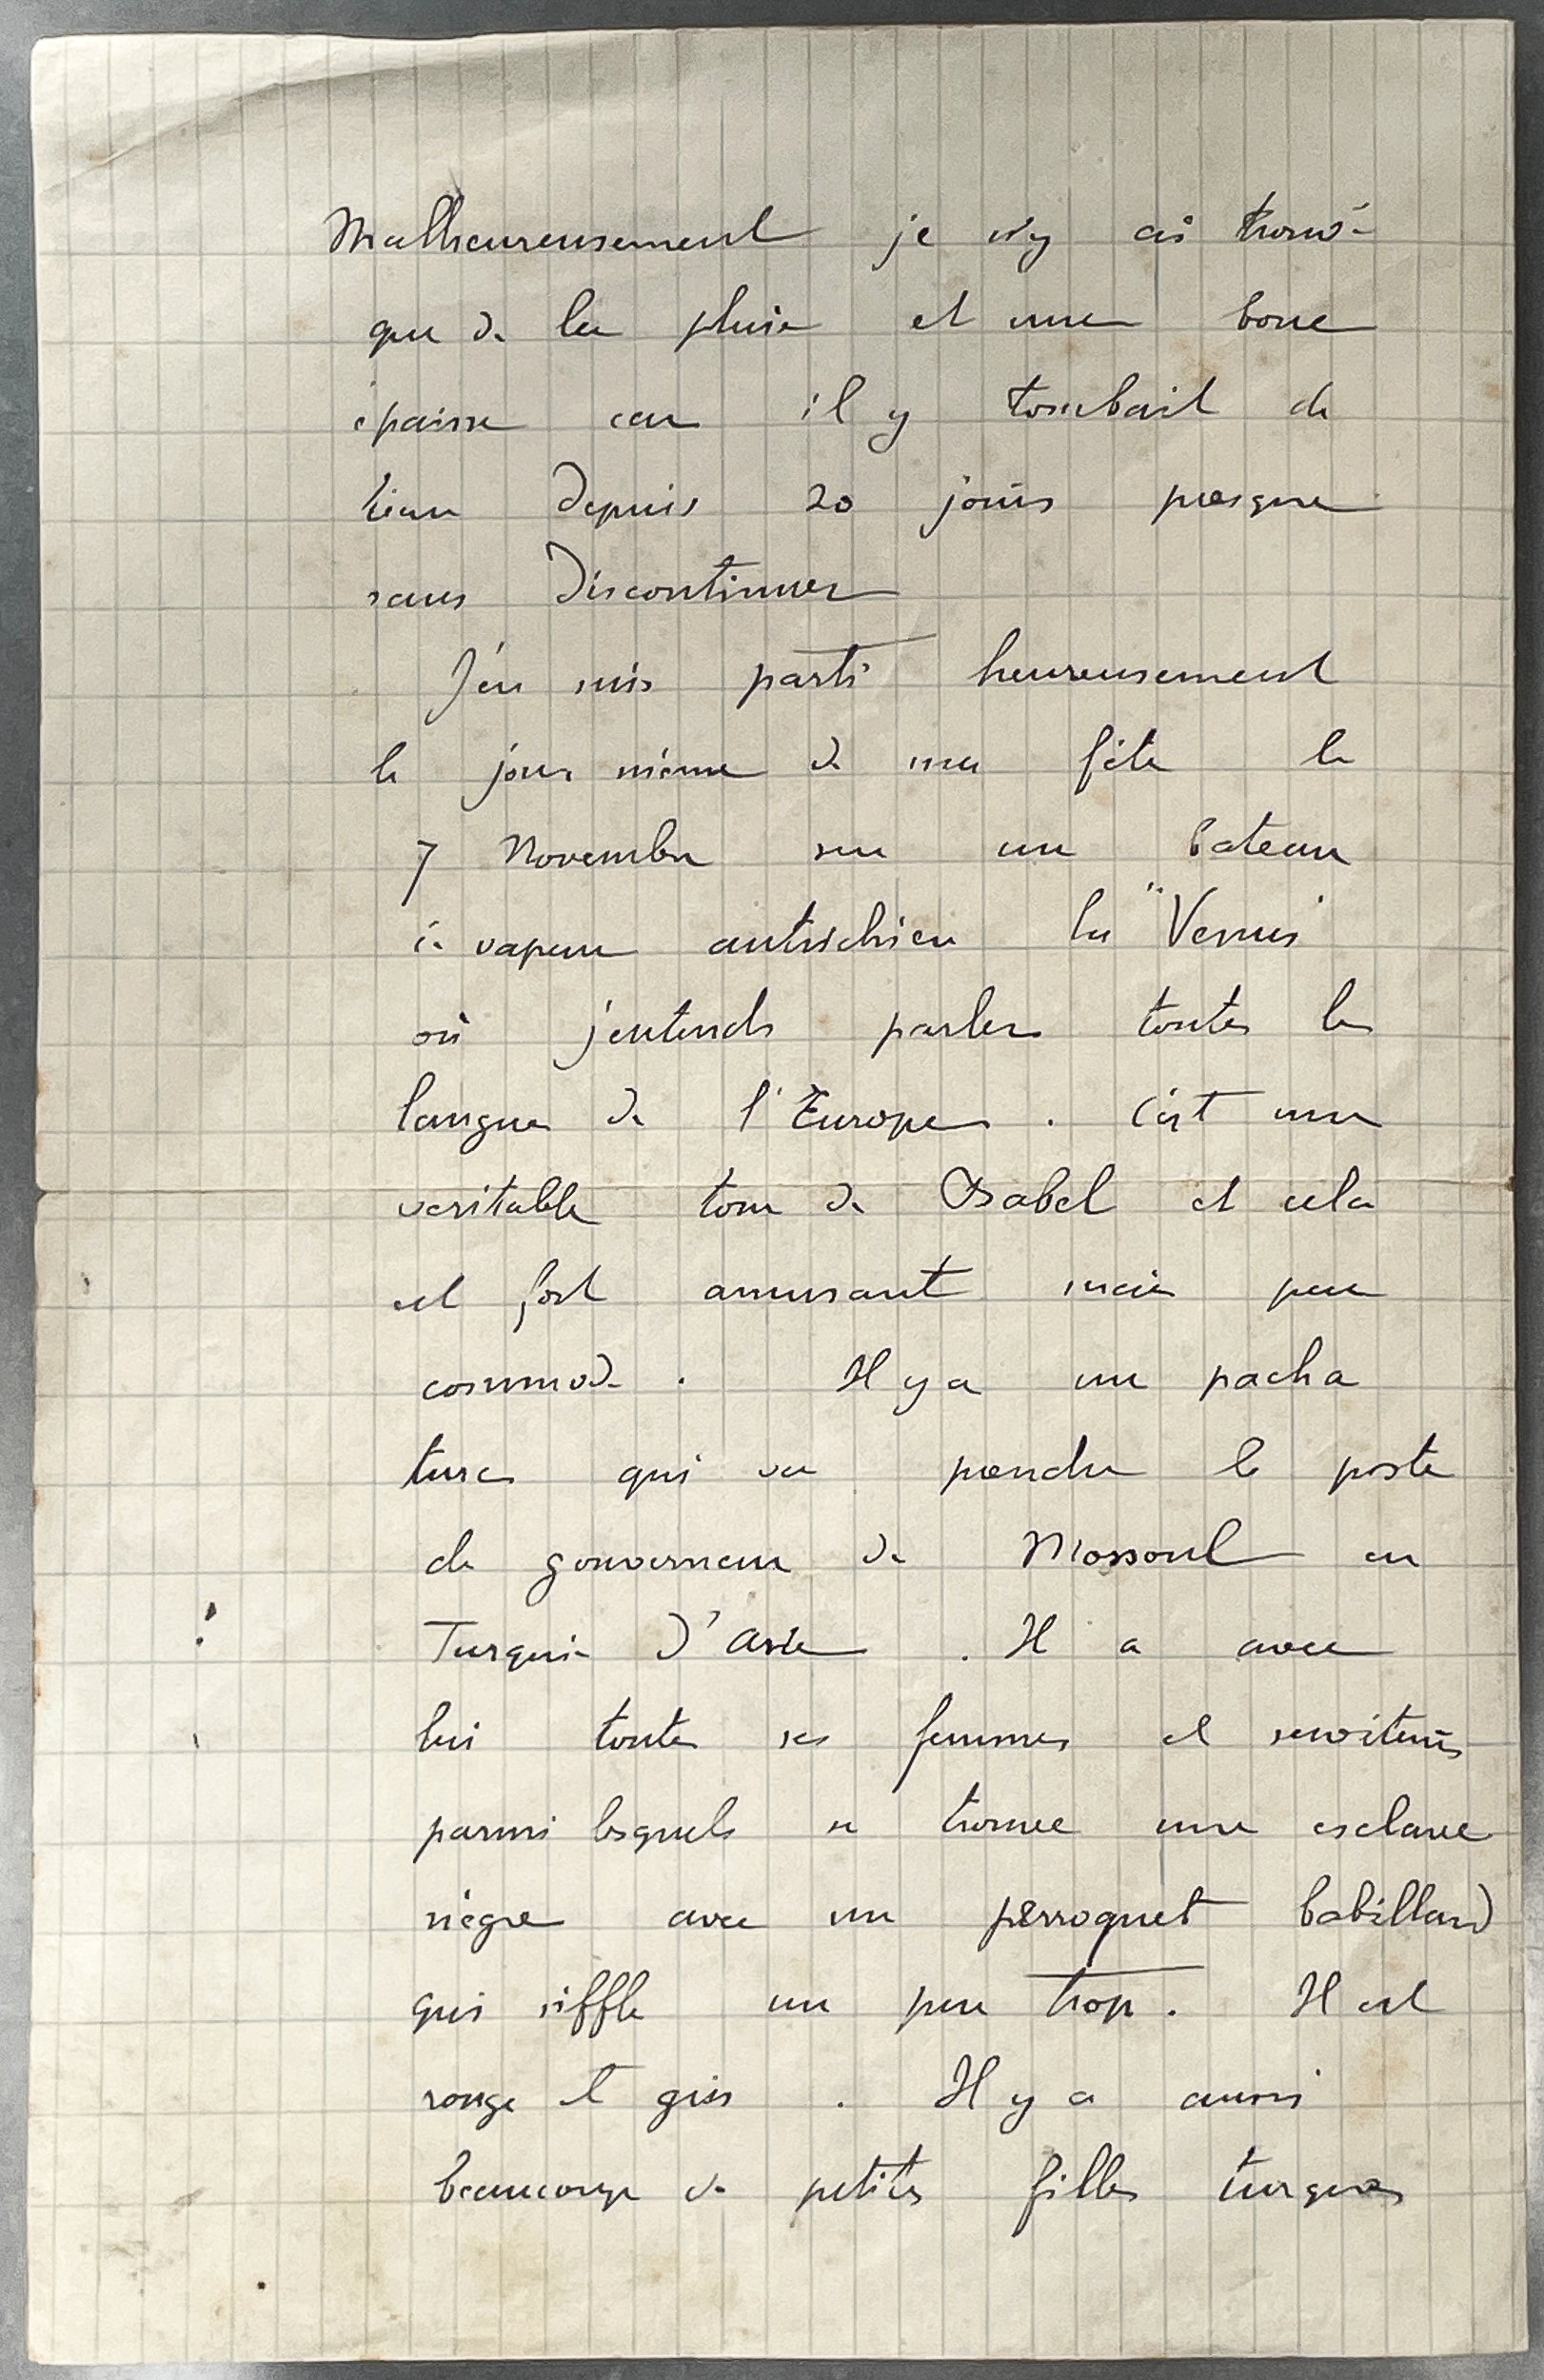 Malheureusement je n'y ai trouvé
que de la pluie et une boue
épaisse car il y tombait de
l'eau depuis 20 jours presque
sans discontinuer
J'en suis parti heureusement
le jour même de ma fête le
7 Novembre sur un bateau
à vapeur autrichien la "Venus"
où j'entends parler toutes les
langues de l'Europe. C'est une
veritable tour de Babel et cela
est fort amusant mais peu
commode. Il y a un pacha
turc qui va prendre le poste
de gouverneur de Mossoul en
Turquie d'Asie. Il a avec
lui toutes ses femmes et serviteurs
parmi lesquels se trouve une esclave
nègre avec un perroquet babillard
qui siffle un peu trop. Il est
rouge et gris. Il y a aussi
beaucoup de petites filles turques